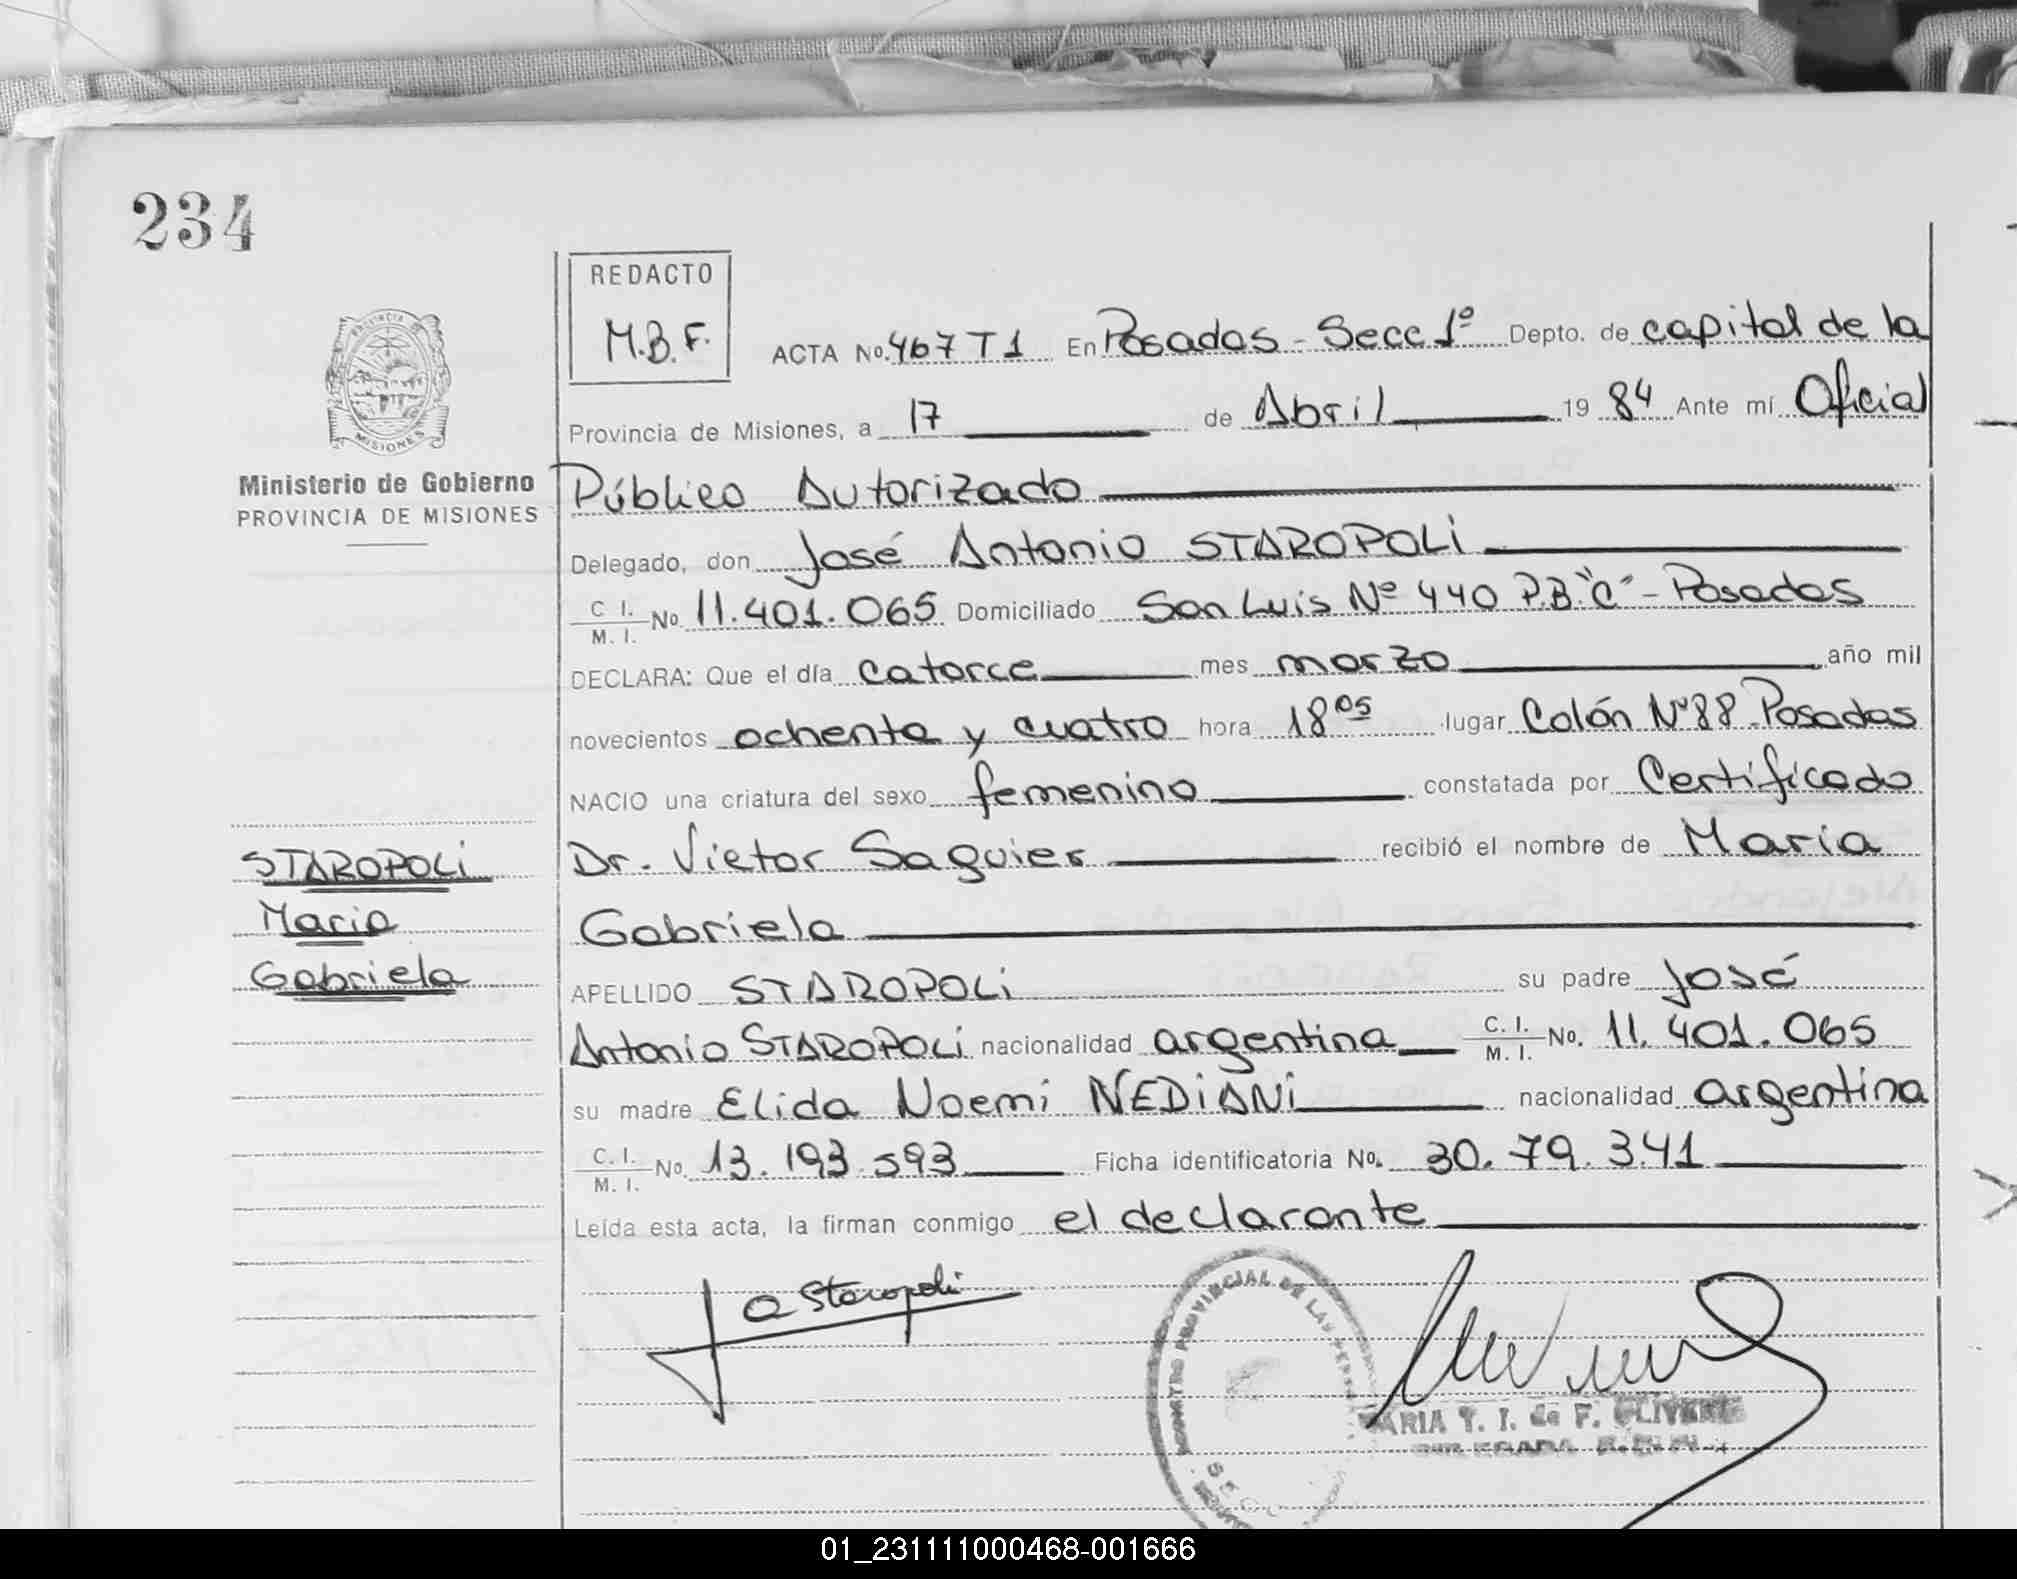 234
REDACTO
M.B.F.
ACTA No. 467 T1 En Posadas - Secc 1º Depto. de capital de la
Provincia de Misiones, a 17 de Abril 19 84 Ante mí Oficial
PROVINCIA DE
MISIONES
Ministerio de Gobierno
PROVINCIA DE MISIONES
Público Autorizado
Delegado, don José Antonio STAROPOLI
C. I. M. I. No. 11.401.065 Domiciliado San Luis Nº 440 P.B."C" - Posadas
DECLARA: Que el día catorce mes marzo año mil
novecientos ochenta y cuatro hora 18 05 lugar Colón Nº 88 - Posadas
NACIO una criatura del sexo femenino constatada por Certificado
Dr. Victor Saguier recibió el nombre de María
Gabriela
STAROPOLI
María
Gabriela
APELLIDO STAROPOLI su padre José
Antonio STAROPOLI nacionalidad argentina C. I. M. I. No. 11.401.065
su madre Elida Noemi NEDIANI nacionalidad argentina
C. I. M. I. No. 13.193.593 Ficha identificatoria No. 30.79.341
Leída esta acta, la firman conmigo el declarante
J a Staropoli
PROVINCIAL DE LAS
MARIA T. I. de F.
01_231111000468-001666